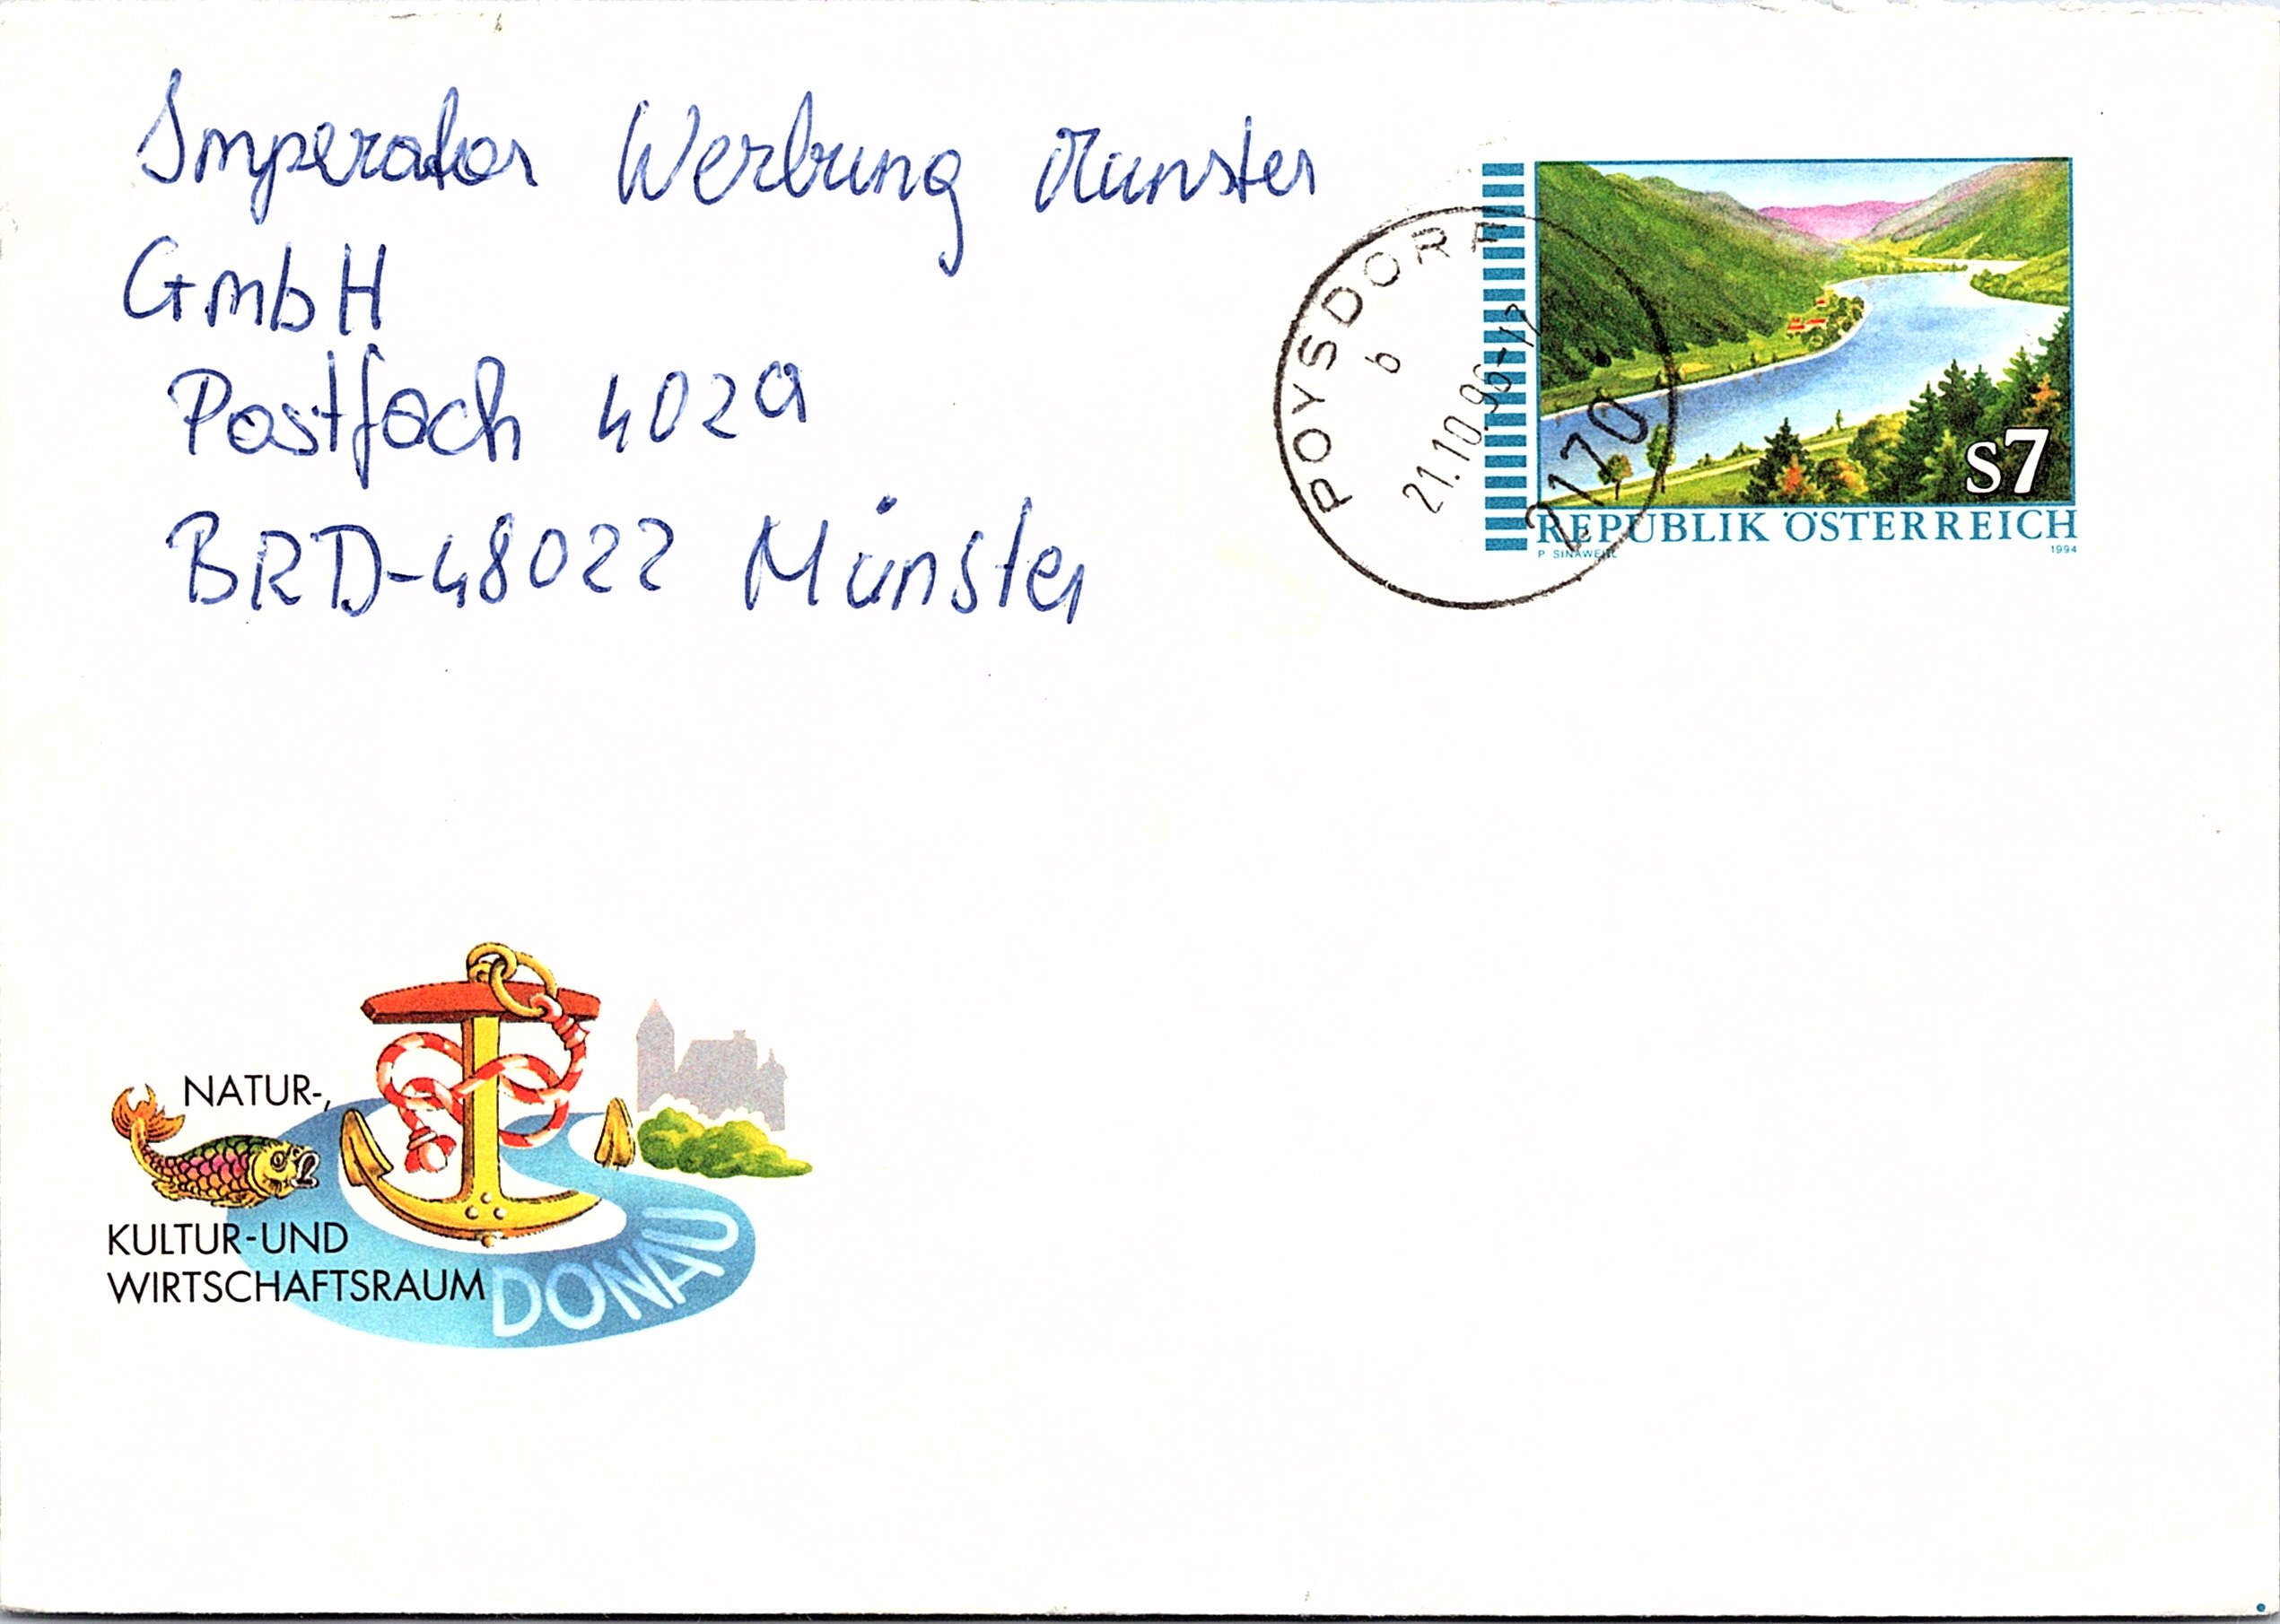 Imperator Werbung Münster
GmbH
Postfach 4029
BRD-48022 Münster
POYSDORF
b
21.10.96-17
2170
S7
REPUBLIK ÖSTERREICH
P SINAWEHL
1994
NATUR-,
KULTUR-UND
WIRTSCHAFTSRAUM DONAU